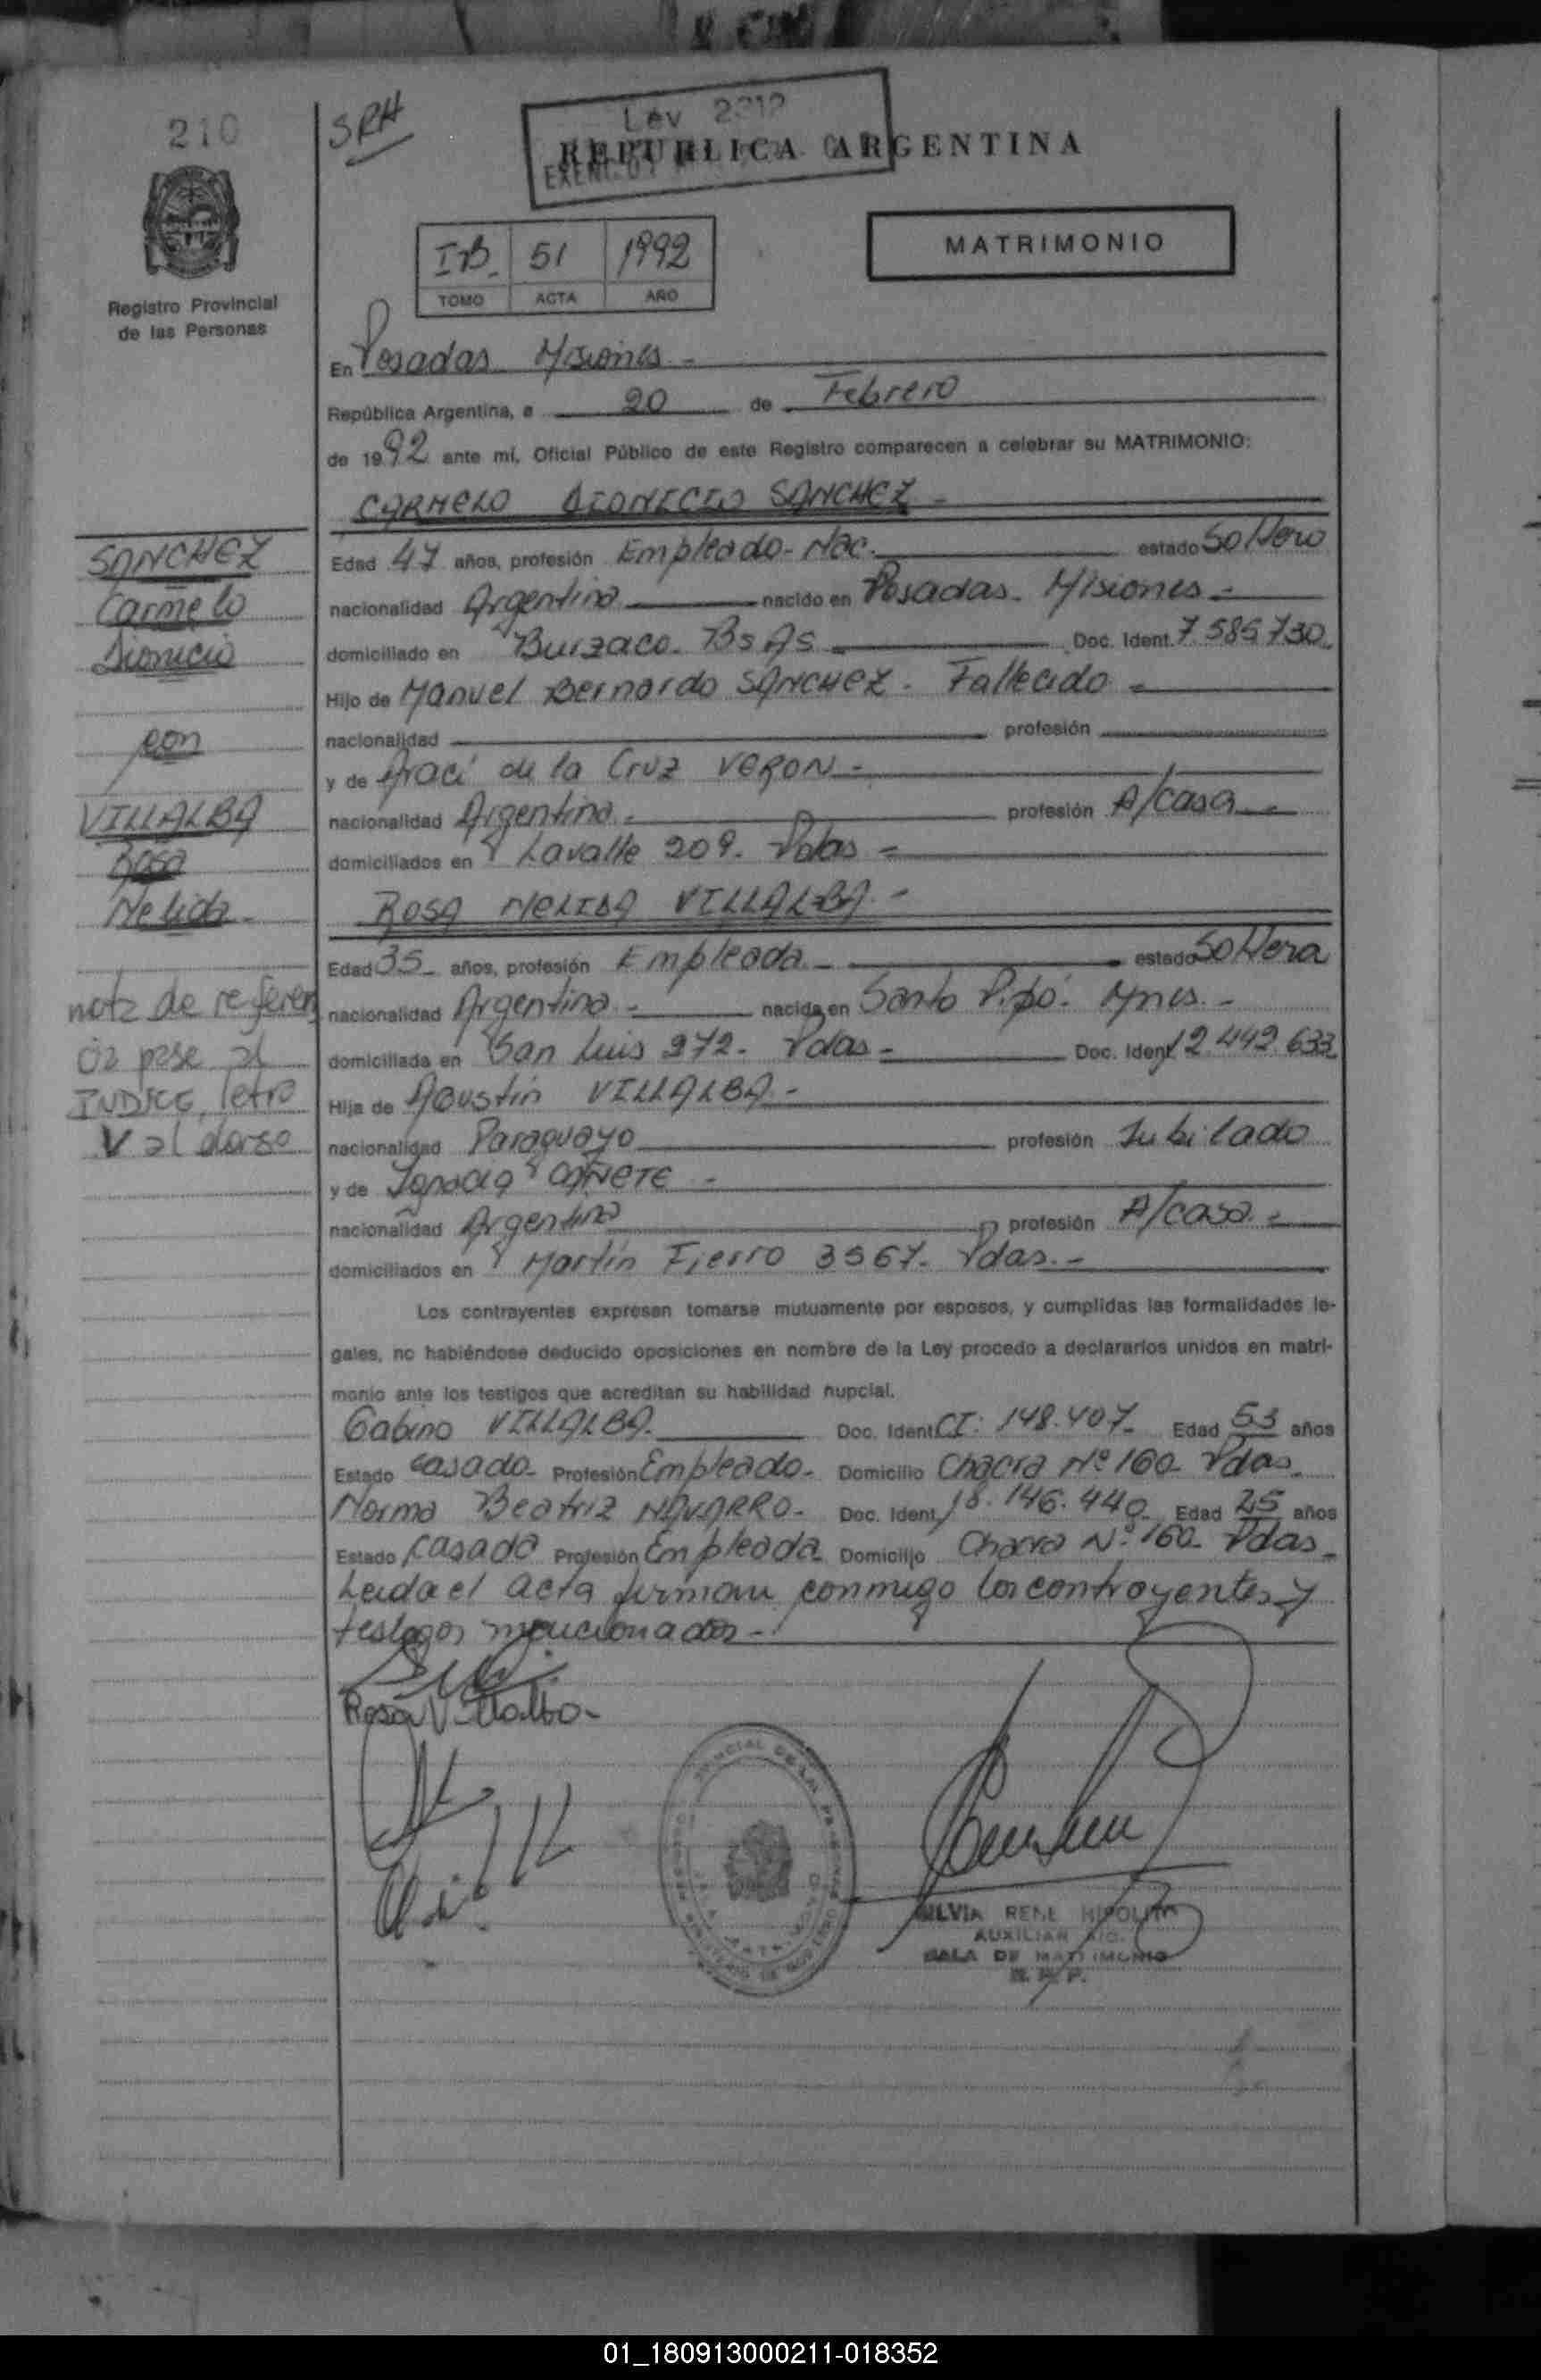 210
SRH
Ley 2312
REPUBLICA ARGENTINA
Registro Provincial
de las Personas
I B. 51 1992
TOMO ACTA AÑO
MATRIMONIO
En Posadas Misiones -
República Argentina, a 20 de Febrero
de 1992 ante mí, Oficial Público de este Registro comparecen a celebrar su MATRIMONIO:
CARMELO DIONICIO SANCHEZ -
Edad 47 años, profesión Empleado - Nac. estado Soltero
nacionalidad Argentina nacido en Posadas. Misiones -
domiciliado en Burzaco. Bs As Doc. Ident. 7.585.730
Hijo de Manuel Bernardo SANCHEZ - Fallecido -
nacionalidad profesión
y de Araci de la Cruz VERON -
nacionalidad Argentina - profesión A/casa -
domiciliados en Lavalle 209. Pdas -
ROSA NELIDA VILLALBA -
Edad 35 años, profesión Empleada - estado Soltera
nacionalidad Argentina - nacida en Santo Pipó. Mnes. -
domiciliada en San Luis 972. Pdas - Doc. Ident. 12.442.633
Hija de Agustín VILLALBA -
nacionalidad Paraguayo profesión Jubilado
y de Ignacia CAÑETE -
nacionalidad Argentina profesión A/casa -
domiciliados en Martín Fierro 3567. Pdas. -
Los contrayentes expresan tomarse mutuamente por esposos, y cumplidas las formalidades le-
gales, no habiéndose deducido oposiciones en nombre de la Ley procedo a declararlos unidos en matri-
monio ante los testigos que acreditan su habilidad nupcial.
Gabino VILLALBA. Doc. Ident. CI: 148.407. Edad 53 años
Estado casado - Profesión Empleado - Domicilio Chacra Nº 160 Pdas.
Norma Beatriz NAVARRO - Doc. Ident. 18.146.440 Edad 25 años
Estado Casada Profesión Empleada Domicilio Chacra Nº 160 - Pdas -
Leida el acta firman conmigo los contrayentes y
testigos mencionados -
SANCHEZ
Carmelo
Dionicio
con
VILLALBA
Rosa
Nelida -
nota de referen
cia pase al
INDICE, letra
V al dorso
Rosa Villalba -
SILVIA RENE HIPOLITO
AUXILIAR
SALA DE MATRIMONIO
R. P. P.
01_180913000211-018352